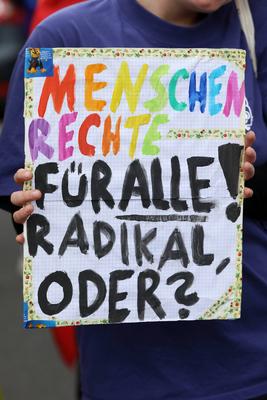 MENSCHEN
RECHTE
FÜR ALLE!
RADIKAL,
ODER?